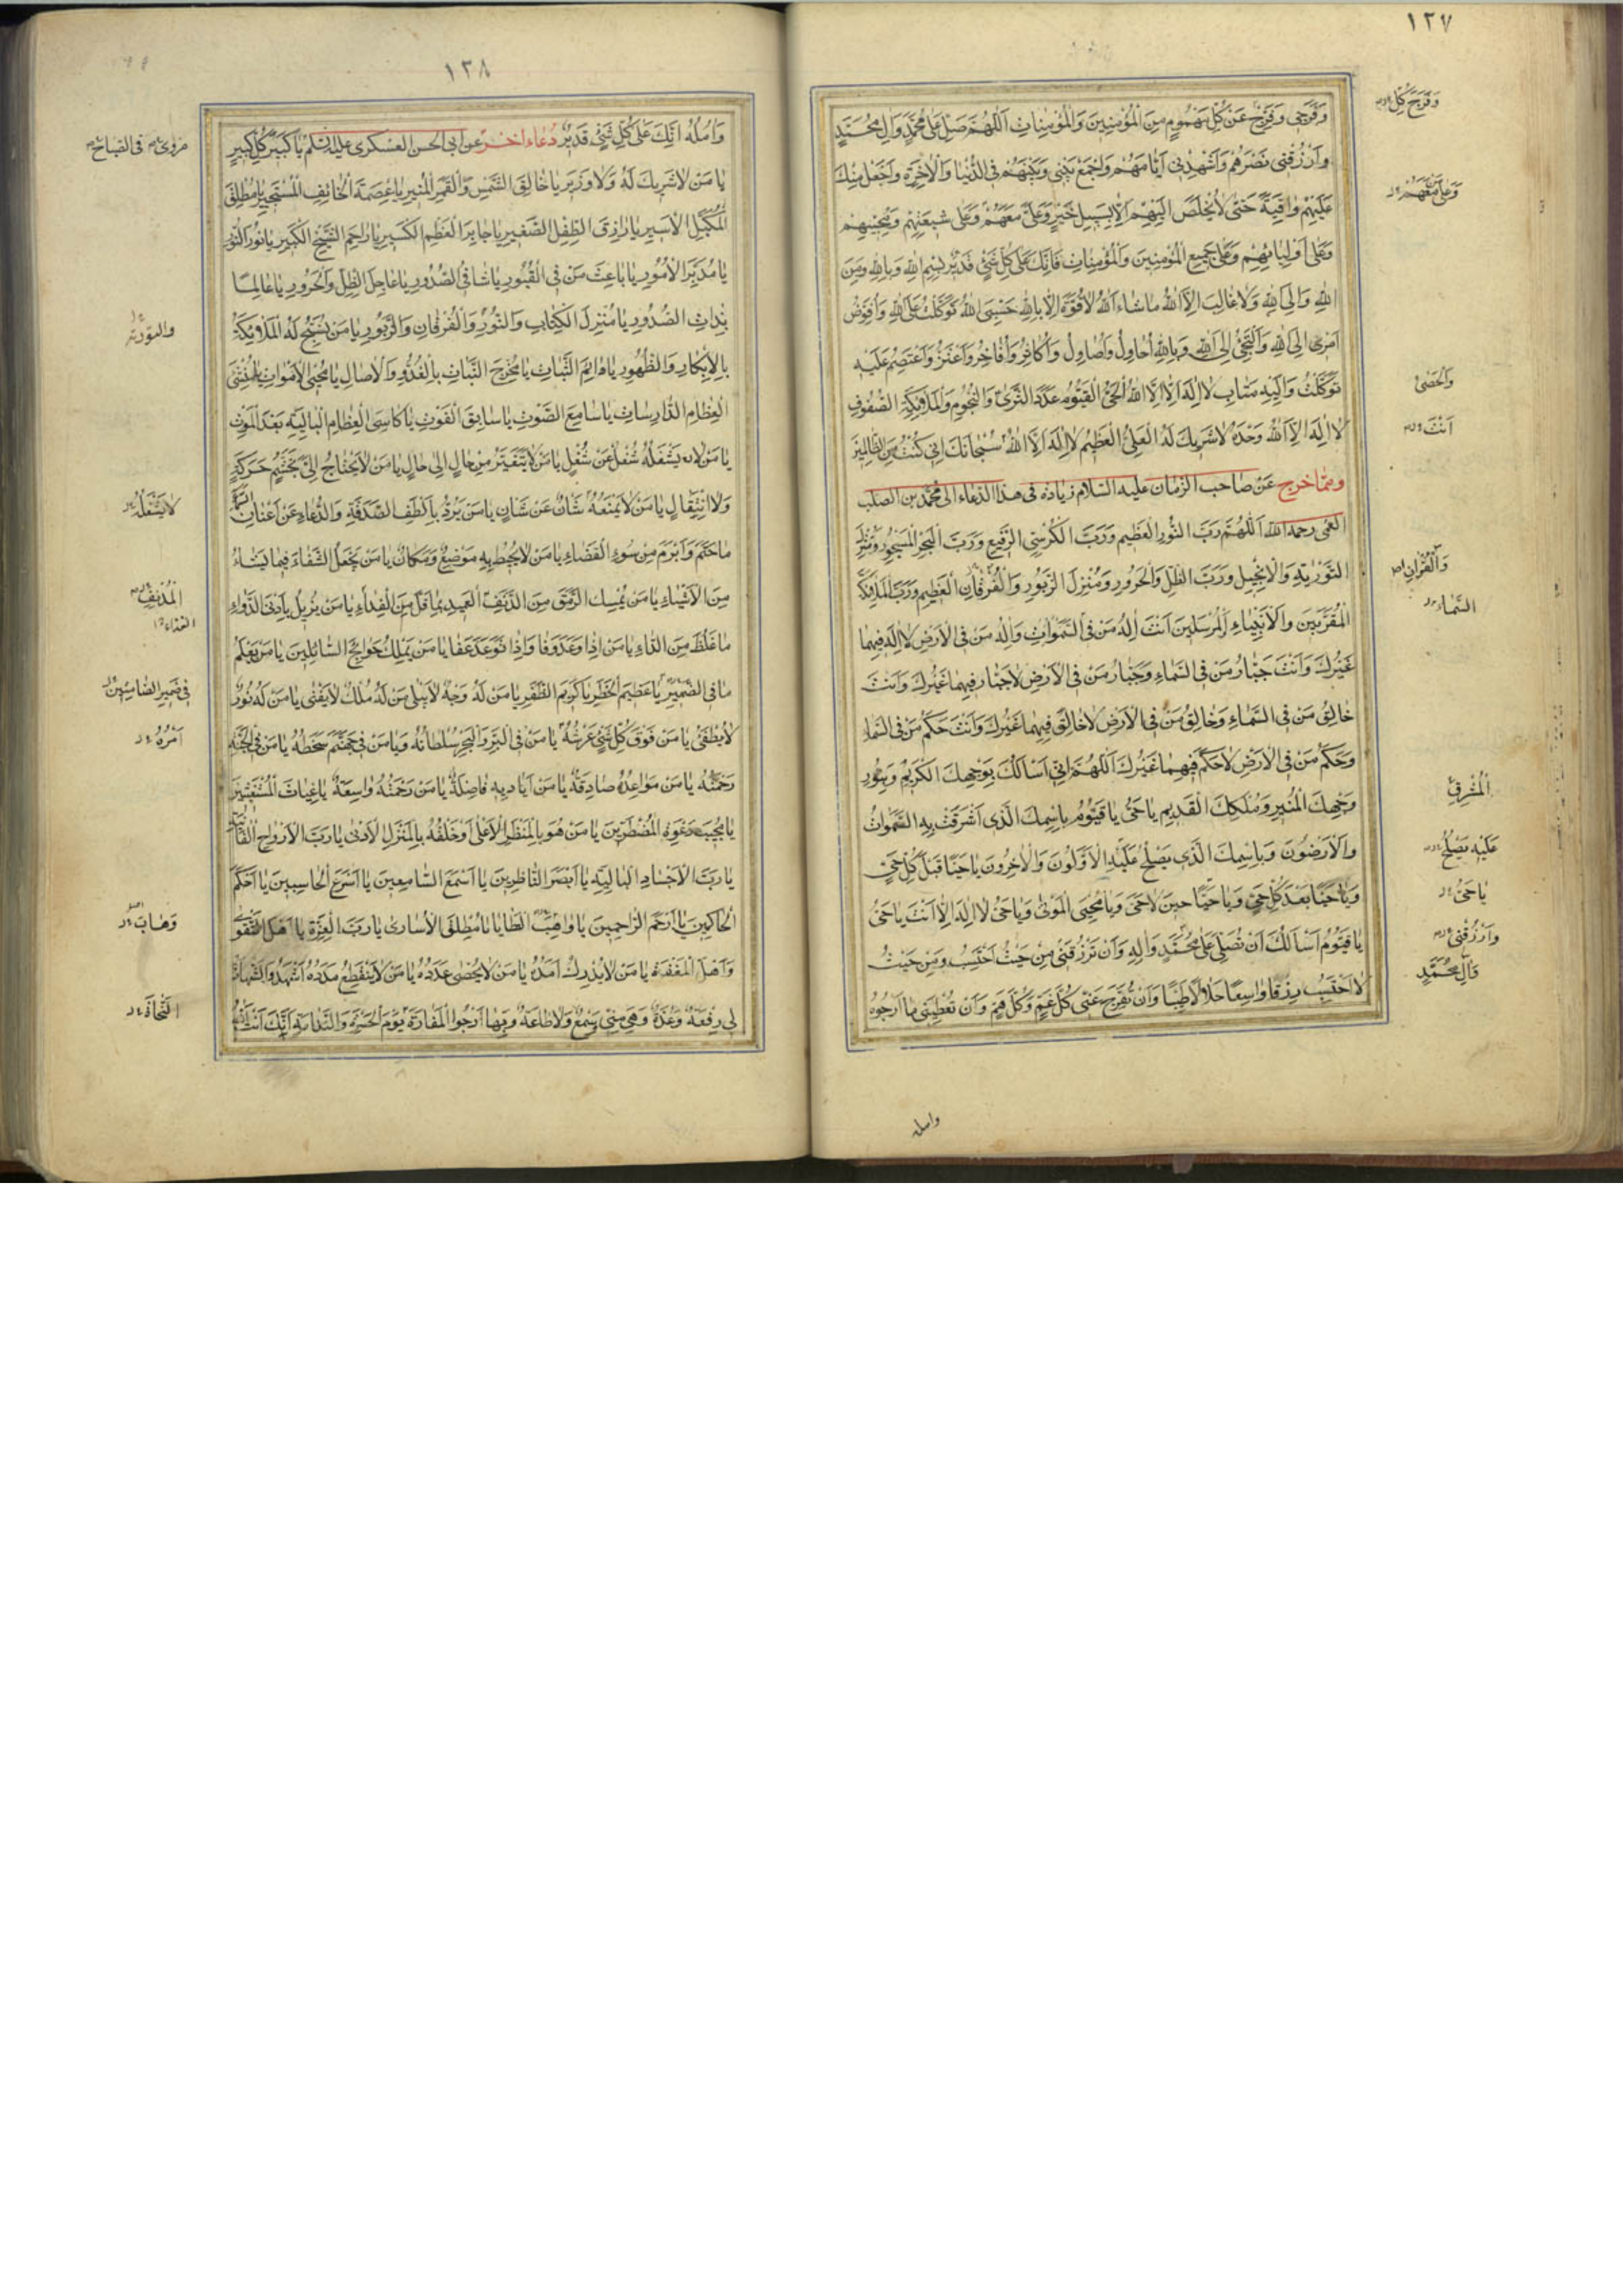 ١٢٧
وَفَرَجی وَفَرِّجْ عَنْ کُلِّ مَهْمُومٍ مِنَ الْمُؤْمِنِینَ وَالْمُؤْمِناتِ اَللّٰهُمَّ صَلِّ عَلیٰ مُحَمَّدٍ وَالِ مُحَمَّدٍ
وَفَرِّجْ کُلَّ
وَارْزُقْنی نَصْرَهُمْ وَاَشْهِدْنی اَیّامَهُمْ وَاجْمَعْ بَیْنی وَبَیْنَهُمْ فِی الدُّنْیا وَالْاٰخِرَةِ وَاجْعَلْ مِنْكَ
وَعَلیٰ مَنْ مَعَهُمْ
عَلَیْهِمْ واقِیَةً حَتّیٰ لایُخْلَصَ اِلَیْهِمْ اِلّا بِسَبیلِ خَیْرٍ وَعَلیٰ مَعَهُمْ وَعَلیٰ شیعَتِهِمْ وَمُحِبّیهِمْ
وَعَلیٰ اَوْلِیائِهِمْ وَعَلیٰ جَمیعِ الْمُؤْمِنینَ وَالْمُؤْمِناتِ فَاِنَّكَ عَلیٰ کُلِّ شَیْءٍ قَدیرٌ بِسْمِ اللهِ وَبِاللهِ وَمِنَ
اللهِ وَاِلَی اللهِ وَلاغالِبَ اِلَّا اللهُ ماشاءَ اللهُ لاقُوَّةَ اِلّا بِاللهِ حَسْبِیَ اللهُ تَوَکَّلْتُ عَلَی اللهِ وَاُفَوِّضُ
اَمْری اِلَی اللهِ وَاَلْتَجِئُ اِلَی اللهِ وَبِاللهِ اُحاوِلُ وَاُصاوِلُ وَاُکاثِرُ وَاُفاخِرُ وَاَعْتَزُّ وَاَعْتَصِمُ عَلَیْهِ
تَوَکَّلْتُ وَاِلَیْهِ مَتابِ لااِلٰهَ اِلَّا اللهُ الْحَیُّ الْقَیُّومُ عَدَدَ الثَّریٰ وَالنُّجُومِ وَالْمَلٰائِکَةِ الصُّفُوفِ
وَالْحَصیٰ
لااِلٰهَ اِلَّا اللهُ وَحْدَهُ لاشَریكَ لَهُ الْعَلِیُّ الْعَظیمُ لااِلٰهَ اِلَّا اللهُ سُبْحانَكَ اِنّی کُنْتُ مِنَ الظّالِمینَ
اَنْتَ
ومما خرج عَنْ صاحب الزمان علیه السّلام زیادة فی هذا الدّعاء الی محمّد بن الصلت
القمی رحمه الله اَللّٰهُمَّ رَبَّ النُّورِ الْعَظیمِ وَرَبَّ الْکُرْسِیِّ الرَّفیعِ وَرَبَّ الْبَحْرِ الْمَسْجُورِ وَمُنْزِلَ
التَّوْریٰةِ وَالْاِنْجیلِ وَرَبَّ الظِّلِّ وَالْحَرُورِ وَمُنْزِلَ الزَّبُورِ وَالْفُرْقانِ الْعَظیمِ وَرَبَّ الْمَلٰائِکَةِ
وَالْقُرْاٰنِ
الْمُقَرَّبینَ وَالْاَنْبِیاءِ الْمُرْسَلینَ اَنْتَ اِلٰهُ مَنْ فِی السَّمٰوٰاتِ وَاِلٰهُ مَنْ فِی الْاَرْضِ لااِلٰهَ فیهِما
السَّماءِ
غَیْرُكَ وَاَنْتَ جَبّارُ مَنْ فِی السَّماءِ وَجَبّارُ مَنْ فِی الْاَرْضِ لاجَبّارَ فیهِما غَیْرُكَ وَاَنْتَ
خالِقُ مَنْ فِی السَّماءِ وَخالِقُ مَنْ فِی الْاَرْضِ لاخالِقَ فیهِما غَیْرُكَ وَاَنْتَ حَکَمُ مَنْ فِی السَّماءِ
وَحَکَمُ مَنْ فِی الْاَرْضِ لاحَکَمَ فیهِما غَیْرُكَ اَللّٰهُمَّ اِنّی اَسْأَلُكَ بِوَجْهِكَ الْکَریمِ وَبِنُورِ
وَجْهِكَ الْمُنیرِ وَمُلْکِكَ الْقَدیمِ یاحَیُّ یاقَیُّومُ بِاسْمِكَ الَّذی اَشْرَقَتْ بِهِ السَّمٰوٰاتُ
الْمُشْرِقِ
وَالْاَرَضُونَ وَبِاسْمِكَ الَّذی یَصْلُحُ عَلَیْهِ الْاَوَّلُونَ وَالْاٰخِرُونَ یاحَیًّا قَبْلَ کُلِّ حَیٍّ
عَلَیْهِ یَصْلُحُ
وَیاحَیًّا بَعْدَ کُلِّ حَیٍّ وَیاحَیًّا حینَ لاحَیَّ وَیامُحْیِیَ الْمَوْتیٰ وَیاحَیُّ لااِلٰهَ اِلّا اَنْتَ یاحَیُّ
یاحَیُّ
یاقَیُّومُ اَسْأَلُكَ اَنْ تُصَلِّیَ عَلیٰ مُحَمَّدٍ وَاٰلِهِ وَاَنْ تَرْزُقَنی مِنْ حَیْثُ اَحْتَسِبُ وَمِنْ حَیْثُ
وَارْزُقْنی
وَآلِ مُحَمَّدٍ
لااَحْتَسِبُ رِزْقًا واسِعًا حَلالًا طَیِّبًا وَاَنْ تُفَرِّجَ عَنّی کُلَّ غَمٍّ وَکُلَّ هَمٍّ وَاَنْ تُعْطِیَنی ما اَرْجُوهُ
١٢٨
وَاٰمُلُهُ اِنَّكَ عَلیٰ کُلِّ شَیْءٍ قَدیرٌ دُعاء اٰخَر عن ابی الحسن العسکری علیه السّلام یاکَبیرَ کُلِّ کَبیرٍ
یامَنْ لاشَریكَ لَهُ وَلاوَزیرَ یاخالِقَ الشَّمْسِ وَالْقَمَرِ الْمُنیرِ یاعِصْمَةَ الْخائِفِ الْمُسْتَجیرِ یامُطْلِقَ
الْمُکَبَّلِ الْاَسیرِ یارازِقَ الطِّفْلِ الصَّغیرِ یاجابِرَ الْعَظْمِ الْکَسیرِ یاراحِمَ الشَّیْخِ الْکَبیرِ یانُورَ النُّورِ
یامُدَبِّرَ الْاُمُورِ یاباعِثَ مَنْ فِی الْقُبُورِ یاشافِیَ الصُّدُورِ یاجاعِلَ الظِّلِّ وَالْحَرُورِ یاعالِمًا
بِذاتِ الصُّدُورِ یامُنْزِلَ الْکِتابِ وَالنُّورِ وَالْفُرْقانِ وَالزَّبُورِ یامَنْ تُسَبِّحُ لَهُ الْمَلٰائِکَةُ
بِالْاِبْکارِ وَالظُّهُورِ یادائِمَ الثَّباتِ یامُخْرِجَ النَّباتِ بِالْغُدُوِّ وَالْاٰصالِ یامُحْیِیَ الْاَمْواتِ یامُنْشِئَ
الْعِظامِ الدّارِساتِ یاسامِعَ الصَّوْتِ یاسابِقَ الْفَوْتِ یاکاسِیَ الْعِظامِ الْبالِیَةِ بَعْدَ الْمَوْتِ
یامَنْ لایَشْغَلُهُ شُغْلٌ عَنْ شُغْلٍ یامَنْ لایَتَغَیَّرُ مِنْ حالٍ اِلیٰ حالٍ یامَنْ لایَحْتاجُ اِلیٰ تَجَشُّمِ حَرَکَةٍ
وَلاانْتِقالٍ یامَنْ لایَمْنَعُهُ شَأْنٌ عَنْ شَأْنٍ یامَنْ یَرُدُّ بِاَلْطَفِ الصَّدَقَةِ وَالدُّعاءِ عَنْ اَعْنانِ السَّماءِ
لایَشْغَلُهُ
ماحَتَمَ وَاَبْرَمَ مِنْ سُوءِ الْقَضاءِ یامَنْ لایُحیطُ بِهِ مَوْضِعٌ وَمَکانٌ یامَنْ یَجْعَلُ الشِّفاءَ فیما یَشاءُ
مِنَ الْاَشْیاءِ یامَنْ یُمْسِكُ الرَّمَقَ مِنَ الدَّنِفِ الْعَمیدِ بِما قَلَّ مِنَ الْغِذاءِ یامَنْ یُزیلُ بِاَدْنَی الدَّواءِ
الْمُدْنِفِ
ماغَلُظَ مِنَ الدّاءِ یامَنْ اِذا وَعَدَ وَفا وَاِذا تَوَعَّدَ عَفا یامَنْ یَمْلِكُ حَوائِجَ السّائِلینَ یامَنْ یَعْلَمُ
مافِی الضَّمیرِ یاعَظیمَ الْخَطَرِ یاکَریمَ الظَّفَرِ یامَنْ لَهُ وَجْهٌ لایَبْلیٰ یامَنْ لَهُ مُلْكٌ لایَفْنیٰ یامَنْ لَهُ نُورٌ
لایُطْفیٰ یامَنْ فَوْقَ کُلِّ شَیْءٍ عَرْشُهُ یامَنْ فِی الْبَرِّ وَالْبَحْرِ سُلْطانُهُ وَیامَنْ فی جَهَنَّمَ سَخَطُهُ یامَنْ فِی الْجَنَّةِ
اَمْرُهُ
رَحْمَتُهُ یامَنْ مَواعِدُهُ صادِقَةٌ یامَنْ اَیادیهِ فاضِلَةٌ یامَنْ رَحْمَتُهُ واسِعَةٌ یاغِیاثَ الْمُسْتَغیثینَ
یامُجیبَ دَعْوَةِ الْمُضْطَرّینَ یامَنْ هُوَ بِالْمَنْظَرِ الْاَعْلیٰ وَخَلْقُهُ بِالْمَنْزِلِ الْاَدْنیٰ یارَبَّ الْاَرْواحِ الْفانِیَةِ
یارَبَّ الْاَجْسادِ الْبالِیَةِ یااَبْصَرَ النّاظِرینَ یااَسْمَعَ السّامِعینَ یااَسْرَعَ الْحاسِبینَ یااَحْکَمَ
الْحاکِمینَ یااَرْحَمَ الرّاحِمینَ یاواهِبَ الْعَطایا یامُطْلِقَ الْاُساریٰ یارَبَّ الْعِزَّةِ یااَهْلَ التَّقْویٰ
وَهّابَ
وَاَهْلَ الْمَغْفِرَةِ یامَنْ لایُدْرَكُ اَمَدُهُ یامَنْ لایُحْصیٰ عَدَدُهُ یامَنْ لایَنْقَطِعُ مَدَدُهُ اَشْهَدُ وَالشَّهادَةُ
لی رِفْعَةٌ وَعُدَّةٌ وَهِیَ مِنّی سَمْعٌ وَطاعَةٌ وَبِها اَرْجُو الْمَفازَةَ یَوْمَ الْحَسْرَةِ وَالنَّدامَةِ اِنَّكَ اَنْتَ اللهُ